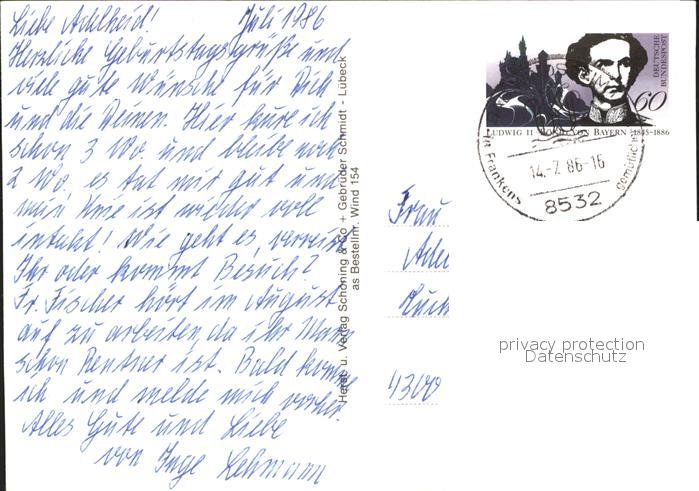 Liebe Adelheid! Juli 1986
Herzliche Geburtstagsgrüße und
viele gute Wünsche für Dich
und die Deinen. Hier kure ich
schon 3 Wo und bleibe noch
2 Wo, es tut mir gut und
mein Knie ist wieder voll
intakt! Wie geht es, verreist
Ihr oder kommt Besuch?
Fr. Fischer hört im August
auf zu arbeiten, da ihr Mann
schon Rentner ist. Bald komme
ich und melde mich vorher.
Alles Gute und Liebe
von Inge Lehmann
Herst. u. Verlag Schöning & Co + Gebrüder Schmidt - Lübeck
as Bestellnr. Wind 154
DEUTSCHE
BUNDESPOST
60
LUDWIG II · KÖNIG VON BAYERN · 1845-1886
in Frankens gemütliche
14.-7.86-16
8532
Frau
4300
privacy protection
Datenschutz